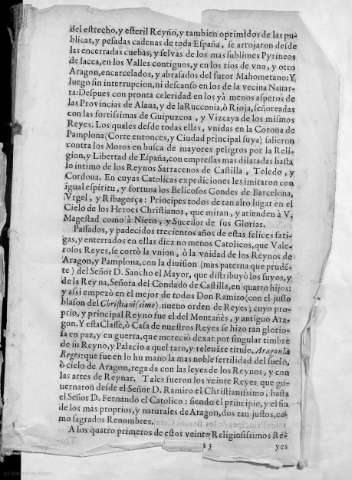 del estrecho, y esteril Reyno, y tambien oprimidos de las pu-
blicas, y pesadas cadenas de toda España, se arrojaron desde
las encerradas cuebas, y selvas de los mas sublimes Pyrineos
de Iacca, en los Valles contiguos, y en los rios de vno, y otro
Aragon, encarcelados, y abrasados del furor Mahometano: Y
luego sin interrupcion, ni descanso en los de la vecina Nauar-
ra: Despues con pronta celeridad en los yà menos asperos de
las Prouincias de Alaua, y de la Rucconia, ò Rioja, señoreadas
con las fortissimas de Guipuzcoa, y Vizcaya de los mismos
Reyes. Los quales desde todas ellas, vnidas en la Corona de
Pamplona (Corte entonces, y Ciudad principal suya) salieron
contra los Moros en busca de mayores peligros por la Reli-
gion, y Libertad de España, con empressas mas dilatadas hasta
lo intimo de los Reynos Sarracenos de Castilla, Toledo, y
Cordoua. En cuyas Catolicas expediciones les imitaron con
igual espiritu, y fortuna los Belicosos Condes de Barcelona,
Vrgel, y Ribagorça: Principes todos de tan alto lugar en el
Cielo de los Heroes Christianos, que miran, y atienden à V.
Magestad como à Nieto, y Sucessor de sus Glorias.
Passados, y padecidos trecientos años de estas felices fati-
gas, y enterrados en ellas diez no menos Catolicos, que Vale-
rosos Reyes, se cortò la vnion, ò la vnidad de los Reynos de
Aragon, y Pamplona, con la diuision (mas paterna que prudẽ-
te) del Señor D. Sancho el Mayor, que distribuyò los suyos, y
de la Reyna, Señora del Condado de Castilla, en quatro hijos:
y assi empezò en el mejor de todos Don Ramiro (con el justo
blason del Christianissimo) nueuo orden de Reyes; cuyo pro-
pio, y principal Reyno fue el del Montañès, y antiguo Ara-
gon. Y esta Classe, ò Casa de nuestros Reyes se hizo tan glorio-
sa en paz, y en guerra, que mereciò dexar por singular timbre
de su Reyno, y Palacio a quel raro, y releuante titulo, Aragonia
Reges: que fue en lo humano la mas noble fertilidad del suelo,
ò cielo de Aragon, regada con las leyes de los Reynos, y con
las artes de Reynar. Tales fueron los veinte Reyes que go-
uernaron desde el Señor D. Ramiro el Christianissimo, hasta
el Señor D. Fernando el Catolico: siendo el principio, y el fin
de los mas proprios, y naturales de Aragon, dos tan justos, co-
mo sagrados Renombres.
A los quatro primeros de estos veinte Religiosissimos Re-
yes